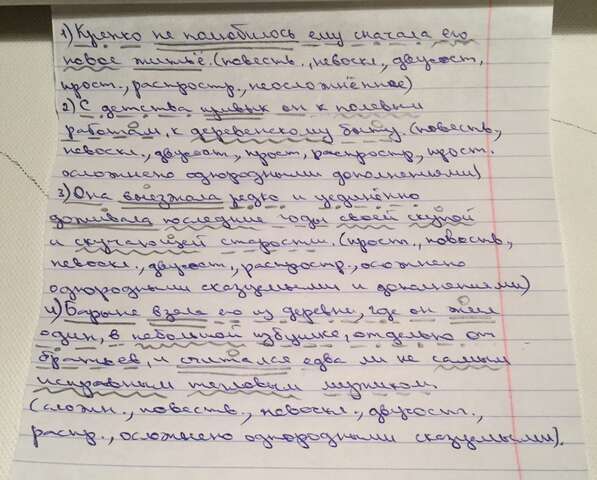 1) Крепко не полюбилось ему сначала его
новое житьё. (повеств., невоскл., двусост.,
прост., распростр., неосложнённое)
2) С детства привык он к полевым
работам, к деревенскому быту. (повеств,
невоскл., двусост., прост, распростр., прост.
осложнено однородными дополнениями)
3) Она выезжала редко и уединённо
доживала последние годы своей скупой
и скучающей старости. (прост., повеств,
невоскл., двусост., распростр., осложнено
однородными сказуемыми и дополнениями)
4) Барыня взяла его из деревни, где он жил
один, в небольшой избушке, отдельно от
братьев, и считался едва ли не самым
исправным тягловым мужиком
(сложн., повеств., невоскл., двусост.,
распр., осложнено однородными сказуемыми).